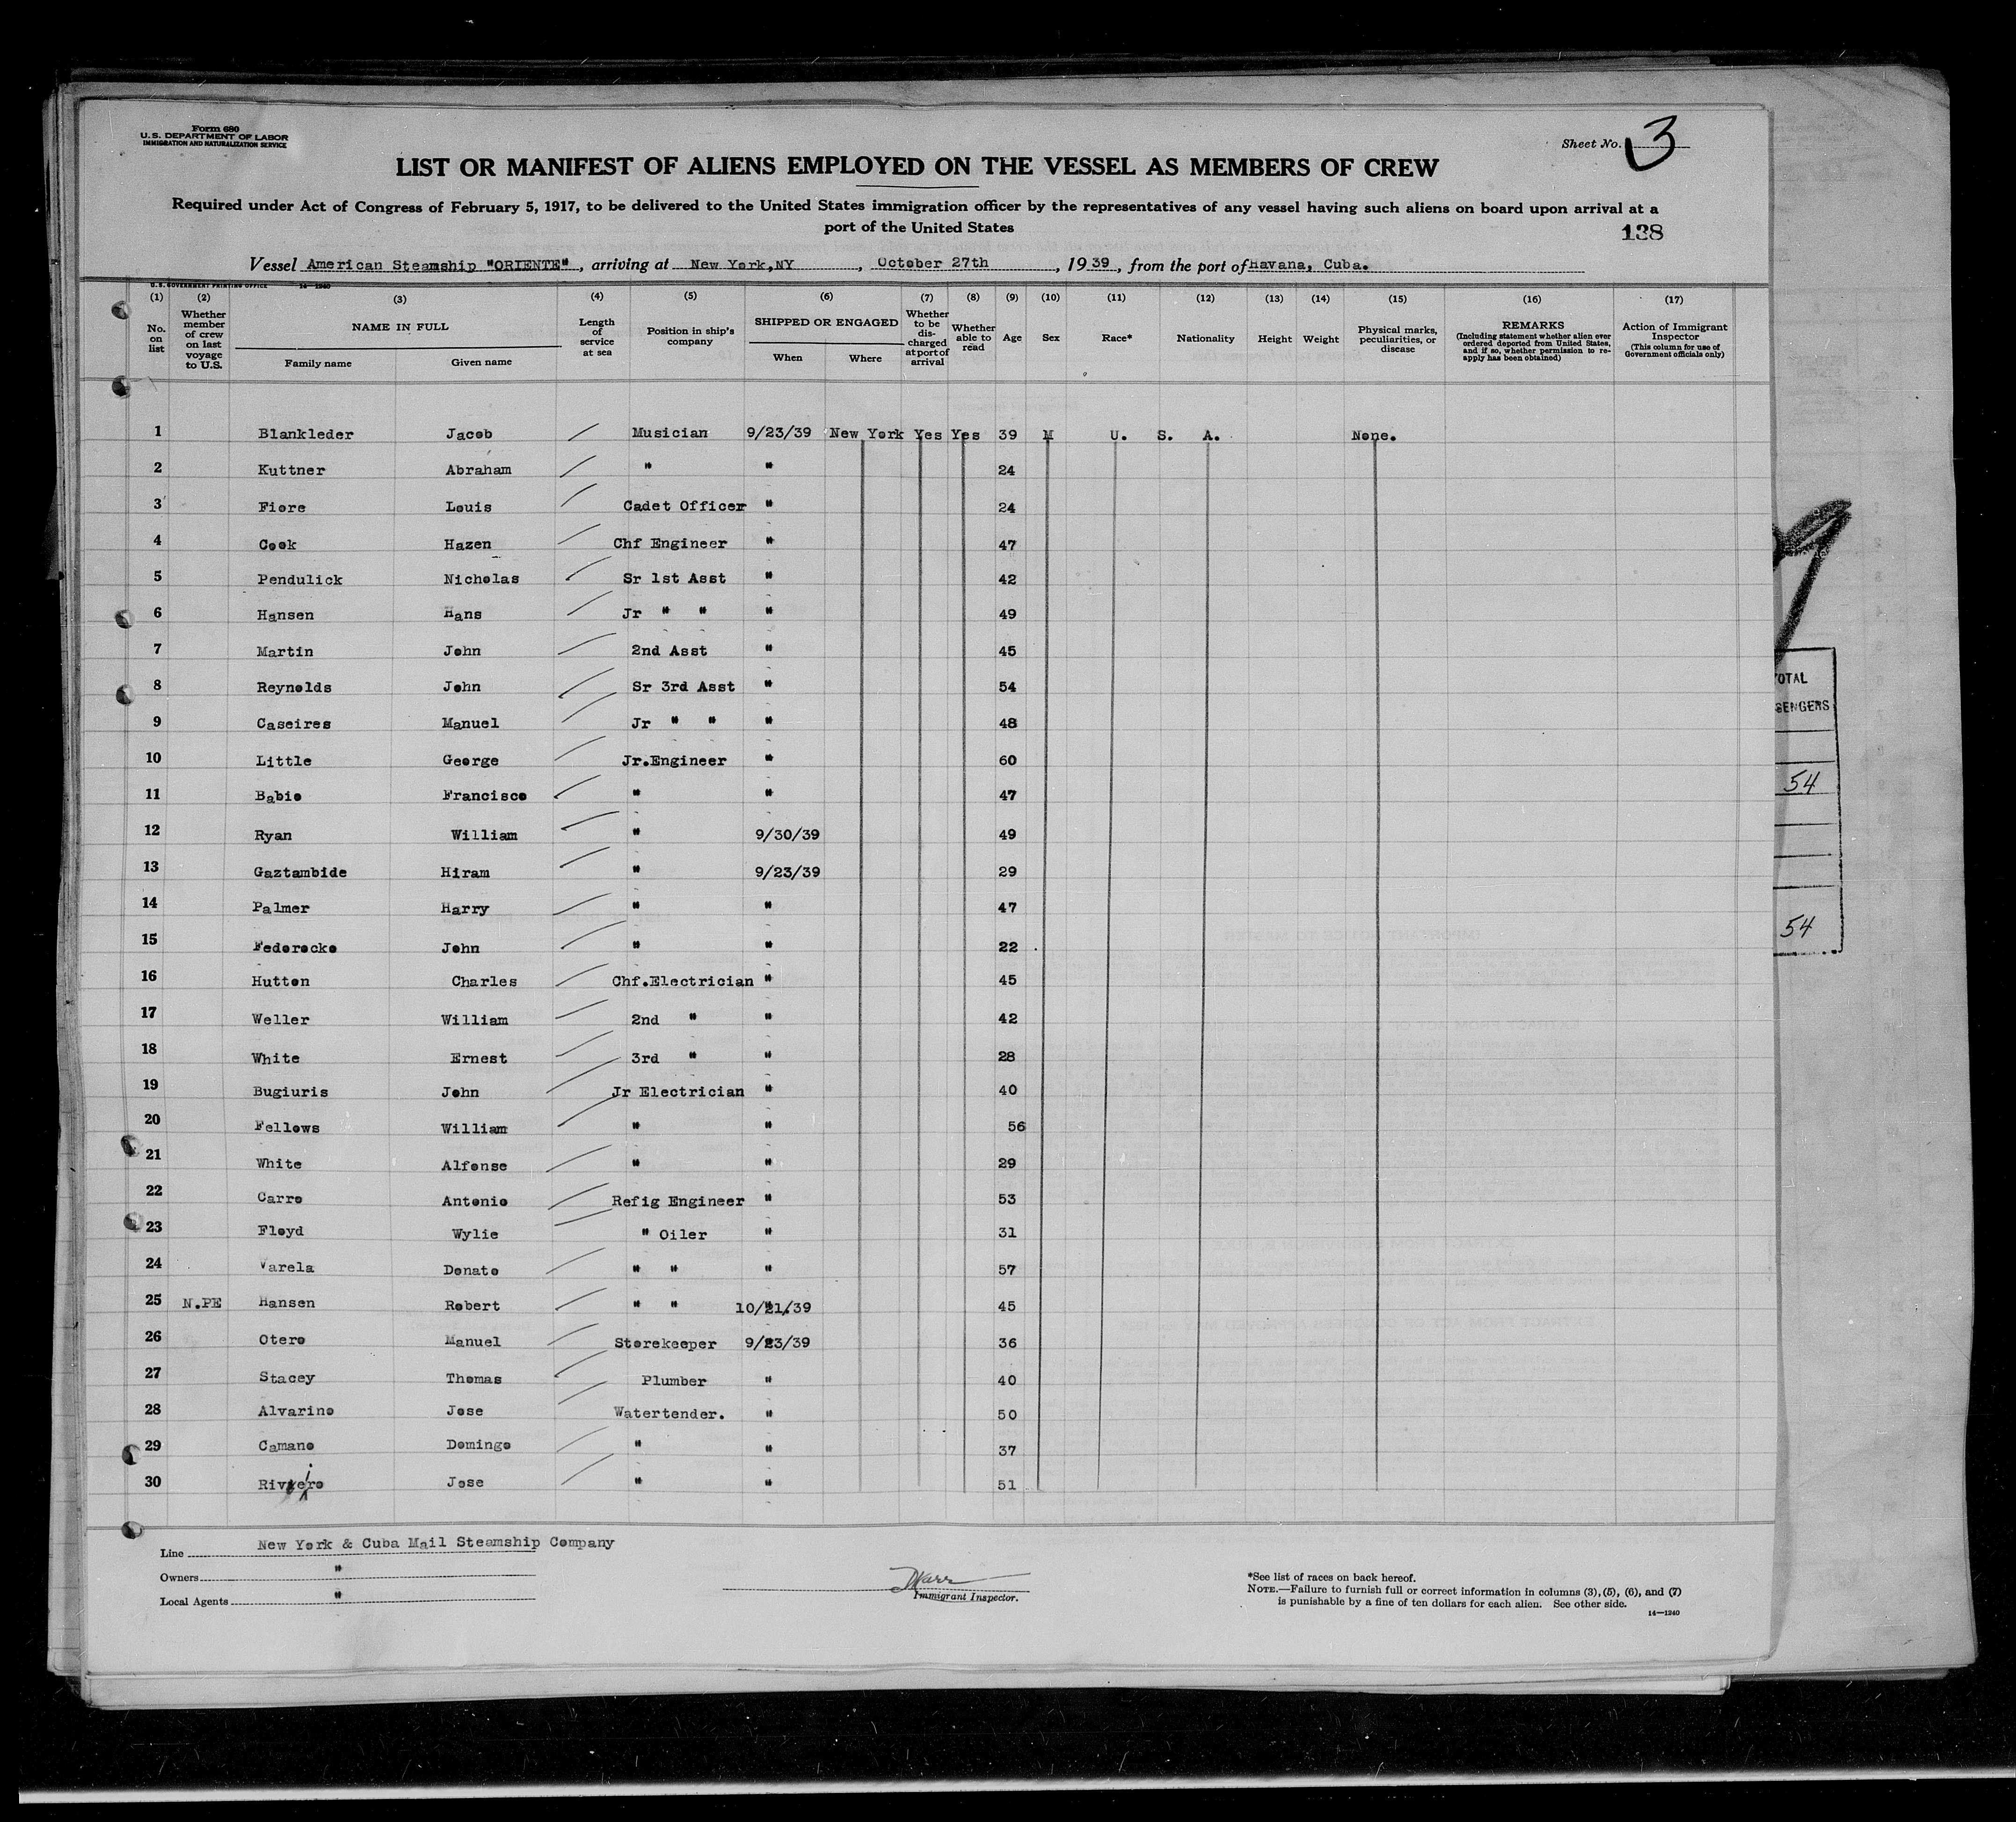 Form 680
U. S. DEPARTMENT OF LABOR
IMMIGRATION AND NATURALIZATION SERVICE
Sheet No. 3
LIST OR MANIFEST OF ALIENS EMPLOYED ON THE VESSEL AS MEMBERS OF CREW
Required under Act of Congress of February 5, 1917, to be delivered to the United States immigration officer by the representatives of any vessel having such aliens on board upon arrival at a
port of the United States
138
Vessel American Steamship "ORIENTE", arriving at New York,NY, October 27th, 1939, from the port of Havana, Cuba.
U. S. GOVERNMENT PRINTING OFFICE 14—1240
(1) (2) (3) (4) (5) (6) (7) (8) (9) (10) (11) (12) (13) (14) (15) (16) (17)
No. on list | Whether member of crew on last voyage to U.S. | NAME IN FULL Family name Given name | Length of service at sea | Position in ship's company | SHIPPED OR ENGAGED When Where | Whether to be discharged at port of arrival | Whether able to read | Age | Sex | Race* | Nationality | Height | Weight | Physical marks, peculiarities, or disease | REMARKS (Including statement whether alien ever ordered deported from United States, and if so, whether permission to reapply has been obtained) | Action of Immigrant Inspector (This column for use of Government officials only)
1 Blankleder Jacob Musician 9/23/39 New York Yes Yes 39 M U. S. A. None.
2 Kuttner Abraham " " 24
3 Fiore Louis Cadet Officer " 24
4 Cook Hazen Chf Engineer " 47
5 Pendulick Nicholas Sr 1st Asst " 42
6 Hansen Hans Jr " " " 49
7 Martin John 2nd Asst " 45
8 Reynolds John Sr 3rd Asst " 54
9 Caseires Manuel Jr " " " 48
10 Little George Jr.Engineer " 60
11 Babio Francisco " " 47
12 Ryan William " 9/30/39 49
13 Gaztambide Hiram " 9/23/39 29
14 Palmer Harry " " 47
15 Federocko John " " 22
16 Hutton Charles Chf.Electrician " 45
17 Weller William 2nd " " 42
18 White Ernest 3rd " " 28
19 Bugiuris John Jr Electrician " 40
20 Fellows William " " 56
21 White Alfonse " " 29
22 Carro Antonio Refig Engineer " 53
23 Floyd Wylie " Oiler " 31
24 Varela Donato " " " 57
25 N.PE Hansen Robert " " 10/21/39 45
26 Otero Manuel Storekeeper 9/23/39 36
27 Stacey Thomas Plumber " 40
28 Alvarino Jose Watertender. " 50
29 Camano Domingo " " 37
30 Riveiro Jose " " 51
Line New York & Cuba Mail Steamship Company
Owners "
Local Agents "
Immigrant Inspector.
*See list of races on back hereof.
NOTE.—Failure to furnish full or correct information in columns (3), (5), (6), and (7)
is punishable by a fine of ten dollars for each alien. See other side.
14—1240
OTAL
SENGERS
54
54